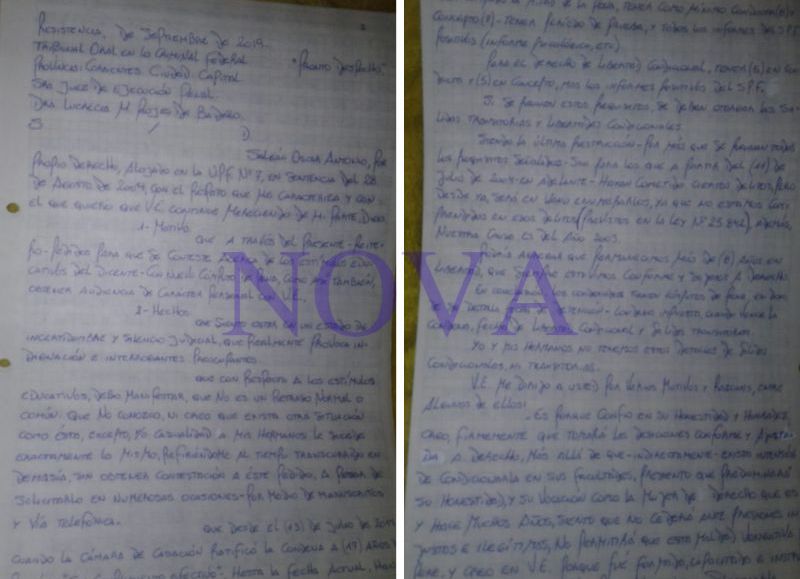 Resistencia, de Septiembre de 2019-
Tribunal Oral en lo Criminal Federal
"Pronto Despacho"
Provincia: Corrientes Ciudad Capital
Sra Juez de Ejecución Penal
Dra Lucrecia M Rojas de Badaró.
S / D
Oscar Antonio, por
propio derecho, alojado en la U.P.F Nº 7, en sentencia del 28
de Agosto de 2009, con el respeto que me caracteriza y con
el que quiero que V.E. continúe mereciendo de mi parte, digo:
1- Motivo:
Que a través del presente- reite-
ro- pedidos para que se conteste acerca de los estímulos edu-
cativos del dicente- con nuevo cómputo de pena, como así también,
obtener audiencia de carácter personal con V.E.
2- Hechos:
Que estar en un estado de
incertidumbre y silencio judicial, que realmente provoca in-
dignación e interrogantes preocupantes.
Que con respecto a los estímulos
educativos, debo manifestar, que no es un retraso normal o
común. Que no conozco, ni creo que exista otra situación
como ésta, excepto, y/o casualidad a mis hermanos le sucede
exactamente lo mismo, refiriéndome al tiempo transcurrido en
demasía, sin obtener contestación a éste pedido, a pesar de
solicitarlo en numerosas ocasiones- por medio de manuscritos
y vía telefónica.
Que desde el (13) de Junio de
cuando la Cámara de Casación ratificó la condena a (17) años
hasta la fecha actual,
de la pena, tener como mínimo conducta
concepto - tener período de prueba, y todos los informes del S.P.F
positivos (informe psicológico, etc).
Para el derecho de libertad condicional, tener (5) en con-
ducta y (5) en concepto, más los informes positivos del S.P.F.
Si se reúnen estos requisitos, se deben otorgar las sa-
lidas transitorias y libertades condicionales.
Siendo la última restricción- por más que se reúnan todos
los requisitos- son para los que a partir del (11) de
Julio de 2004- en adelante- hayan cometido ciertos delitos, pero
desde ya, será en vano enumerarlos, ya que no estamos com-
prendidos en esos delitos (previstos en la Ley Nº 25.892), además,
nuestra causa es del año 2003.
agregar que permanecimos más de (6) años en
libertad, que siempre estuvimos conforme y sujetos a derecho.
los condenados tienen cómputos de pena, en don-
de se detalla fecha de detención- condena impuesta, cuando vence la
condena, fecha de libertad condicional y salidas transitorias.
Yo y mis hermanos no tenemos estos detalles de salidas
condicionales, ni transitorias.
V.E. me dirijo a usted por varios motivos y razones, entre
algunos de ellos:
- Es porque confío en su honestidad y honradez,
creo, firmemente que tomará las decisiones conforme y ajusta-
da a derecho, más allá de que- indirectamente- exista intensión
de condicionarla en sus facultades, presiento que predominará
su honestidad, y su vocación como la mujer de derecho que es
y hace muchos años, siento que no cederá ante presiones in-
justas e ilegítimas, no permitirá que esta maldad
y creo en V.E. porque fue formado, capacitado e
NOVA